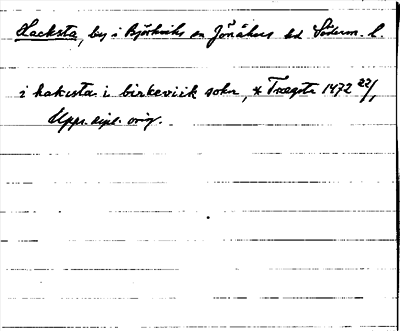 Hacksta, by i Björkviks sn Jönåkers hd Söderm. l.
i hakista i birkeviik sokn, * Trægste 1472 22/1
Upps. dipl. orig.